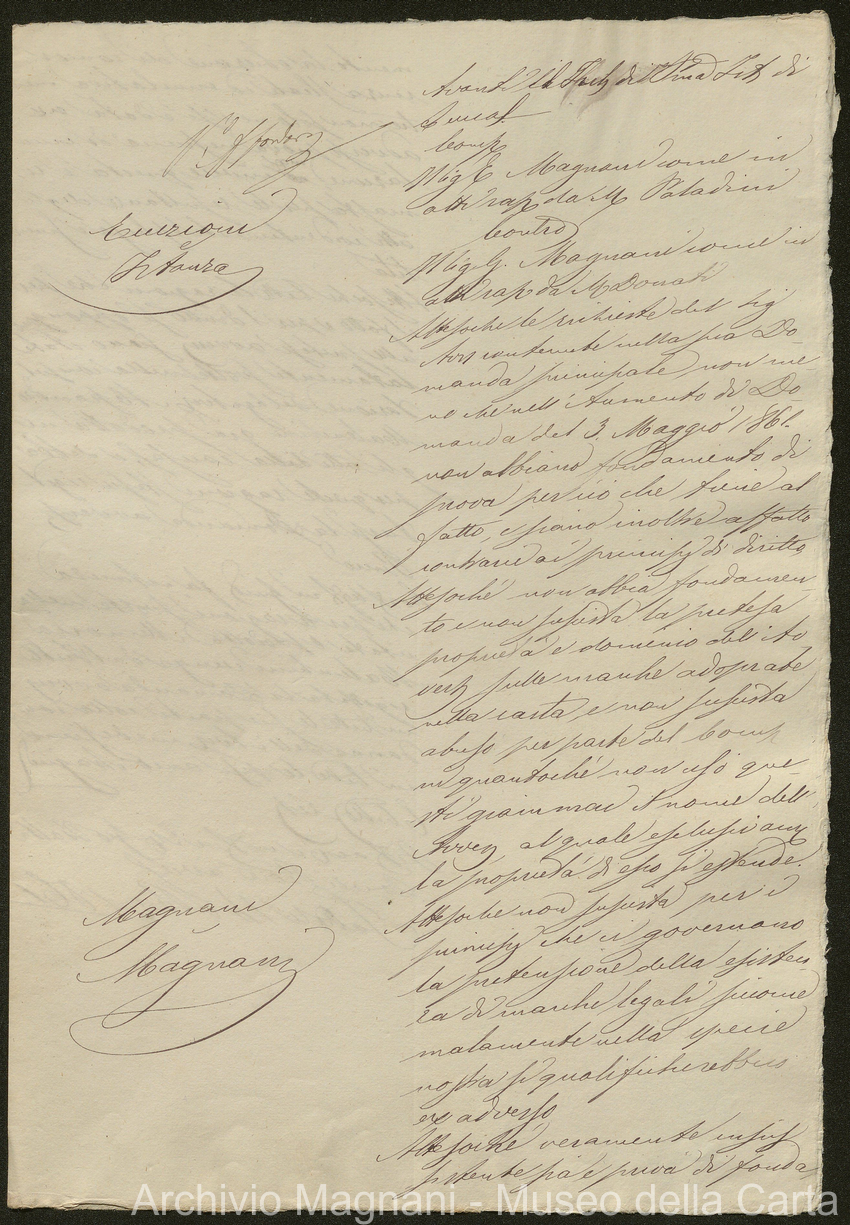 Eccezioni
e
Istanza
Magnani
e
Magnani
Avanti il Trib di Pma Ist di
Lucca
Comp
Il Sig E. Magnani come in
atti rap da M Paladini
Contro
Il Sig G. Magnani come in
atti rap da M Donati
Attesoche le richieste del Sig
Avv contenute nella sua Do-
manda principale non me
no che nell'Aumento di Do-
manda del 3. Maggio 1861.
non abbiano fondamento di
prova per ciò che tiene al
fatto, e siano inoltre affatto
contrarie ai principj di diritto
Attesoché non abbia fondamen-
to e non sussista la pretesa
proprietà e dominio dell'
sulle marche adoprate
nella carta, e non sussista
abuso per parte del Comp
in quantoché non usò que-
sti giammai il nome dell'
Avver al quale
la proprietà di esso si estende.
Attesoche non sussista per i
principj che ci governano
la pretensione della esisten
za di marche legali siccome
malamente nella specie
nostra si qualificherebbero
ex adverso
Attesoiché veramente insus
sistente sia e priva di fonda
Archivio Magnani - Museo della Carta